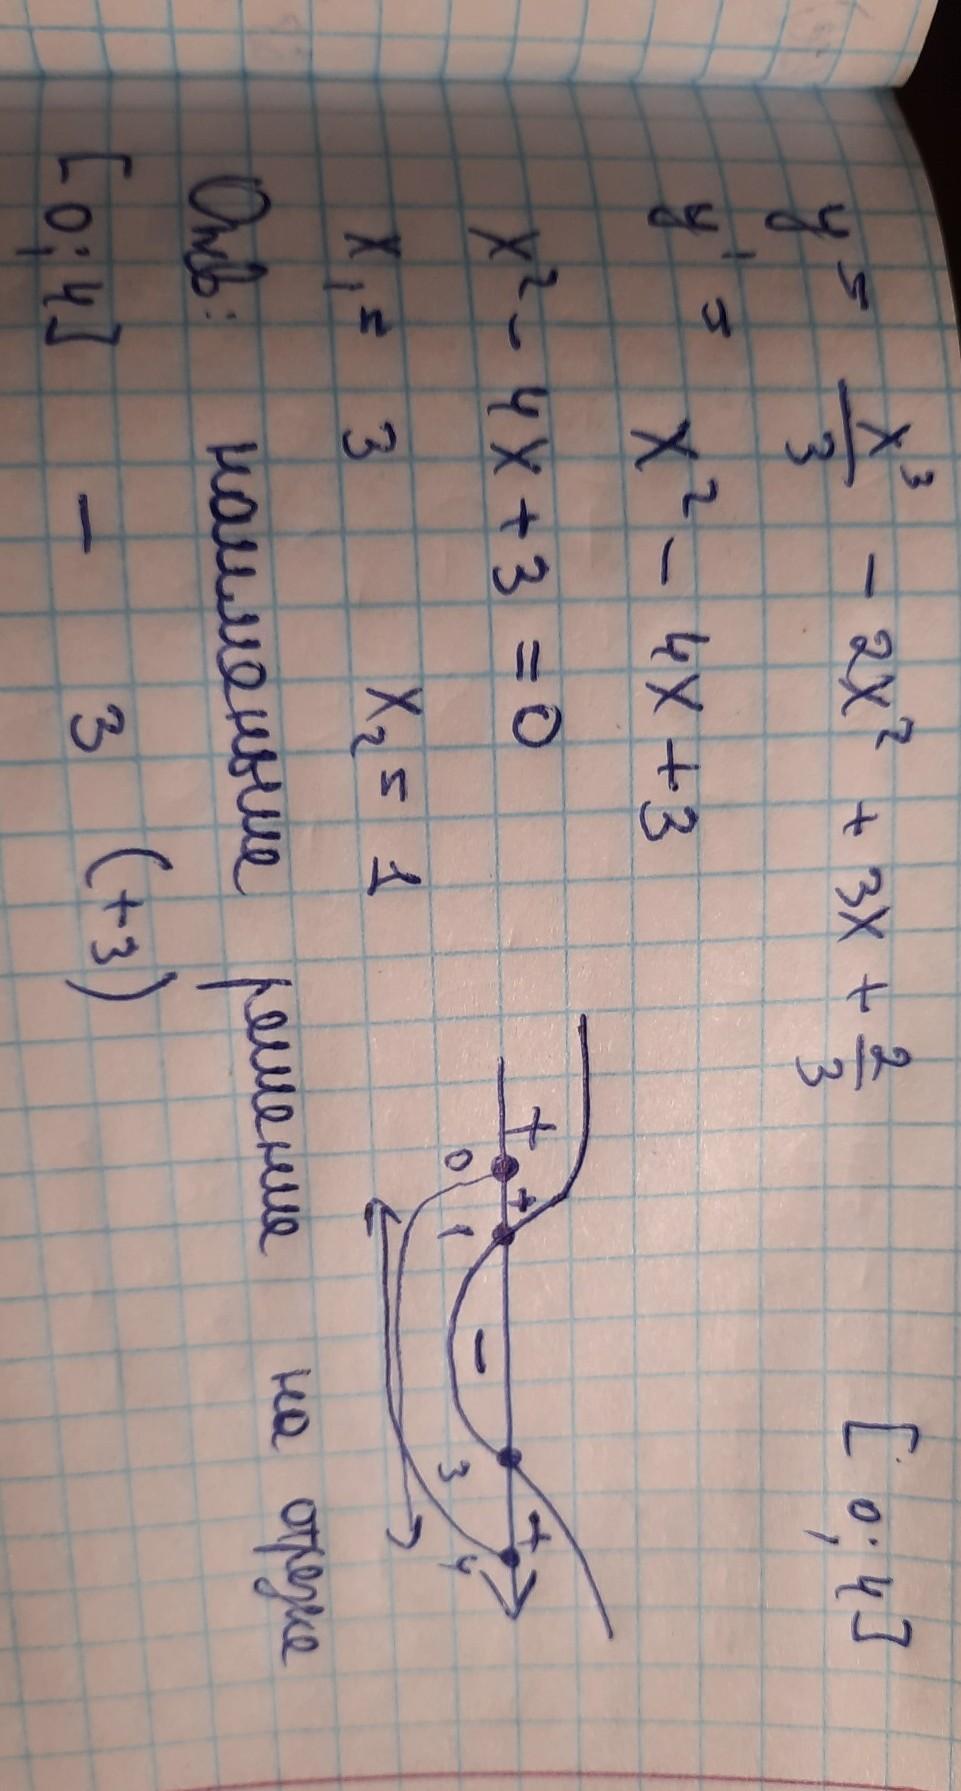 y = x³/3 - 2x² + 3x + 2/3 [0; 4]
y' = x² - 4x + 3
x² - 4x + 3 = 0
x₁ = 3 x₂ = 1
+ + - +
0 1 3 4
Отв: наименьшие решение на отрезке
[0; 4] - 3 (+3)